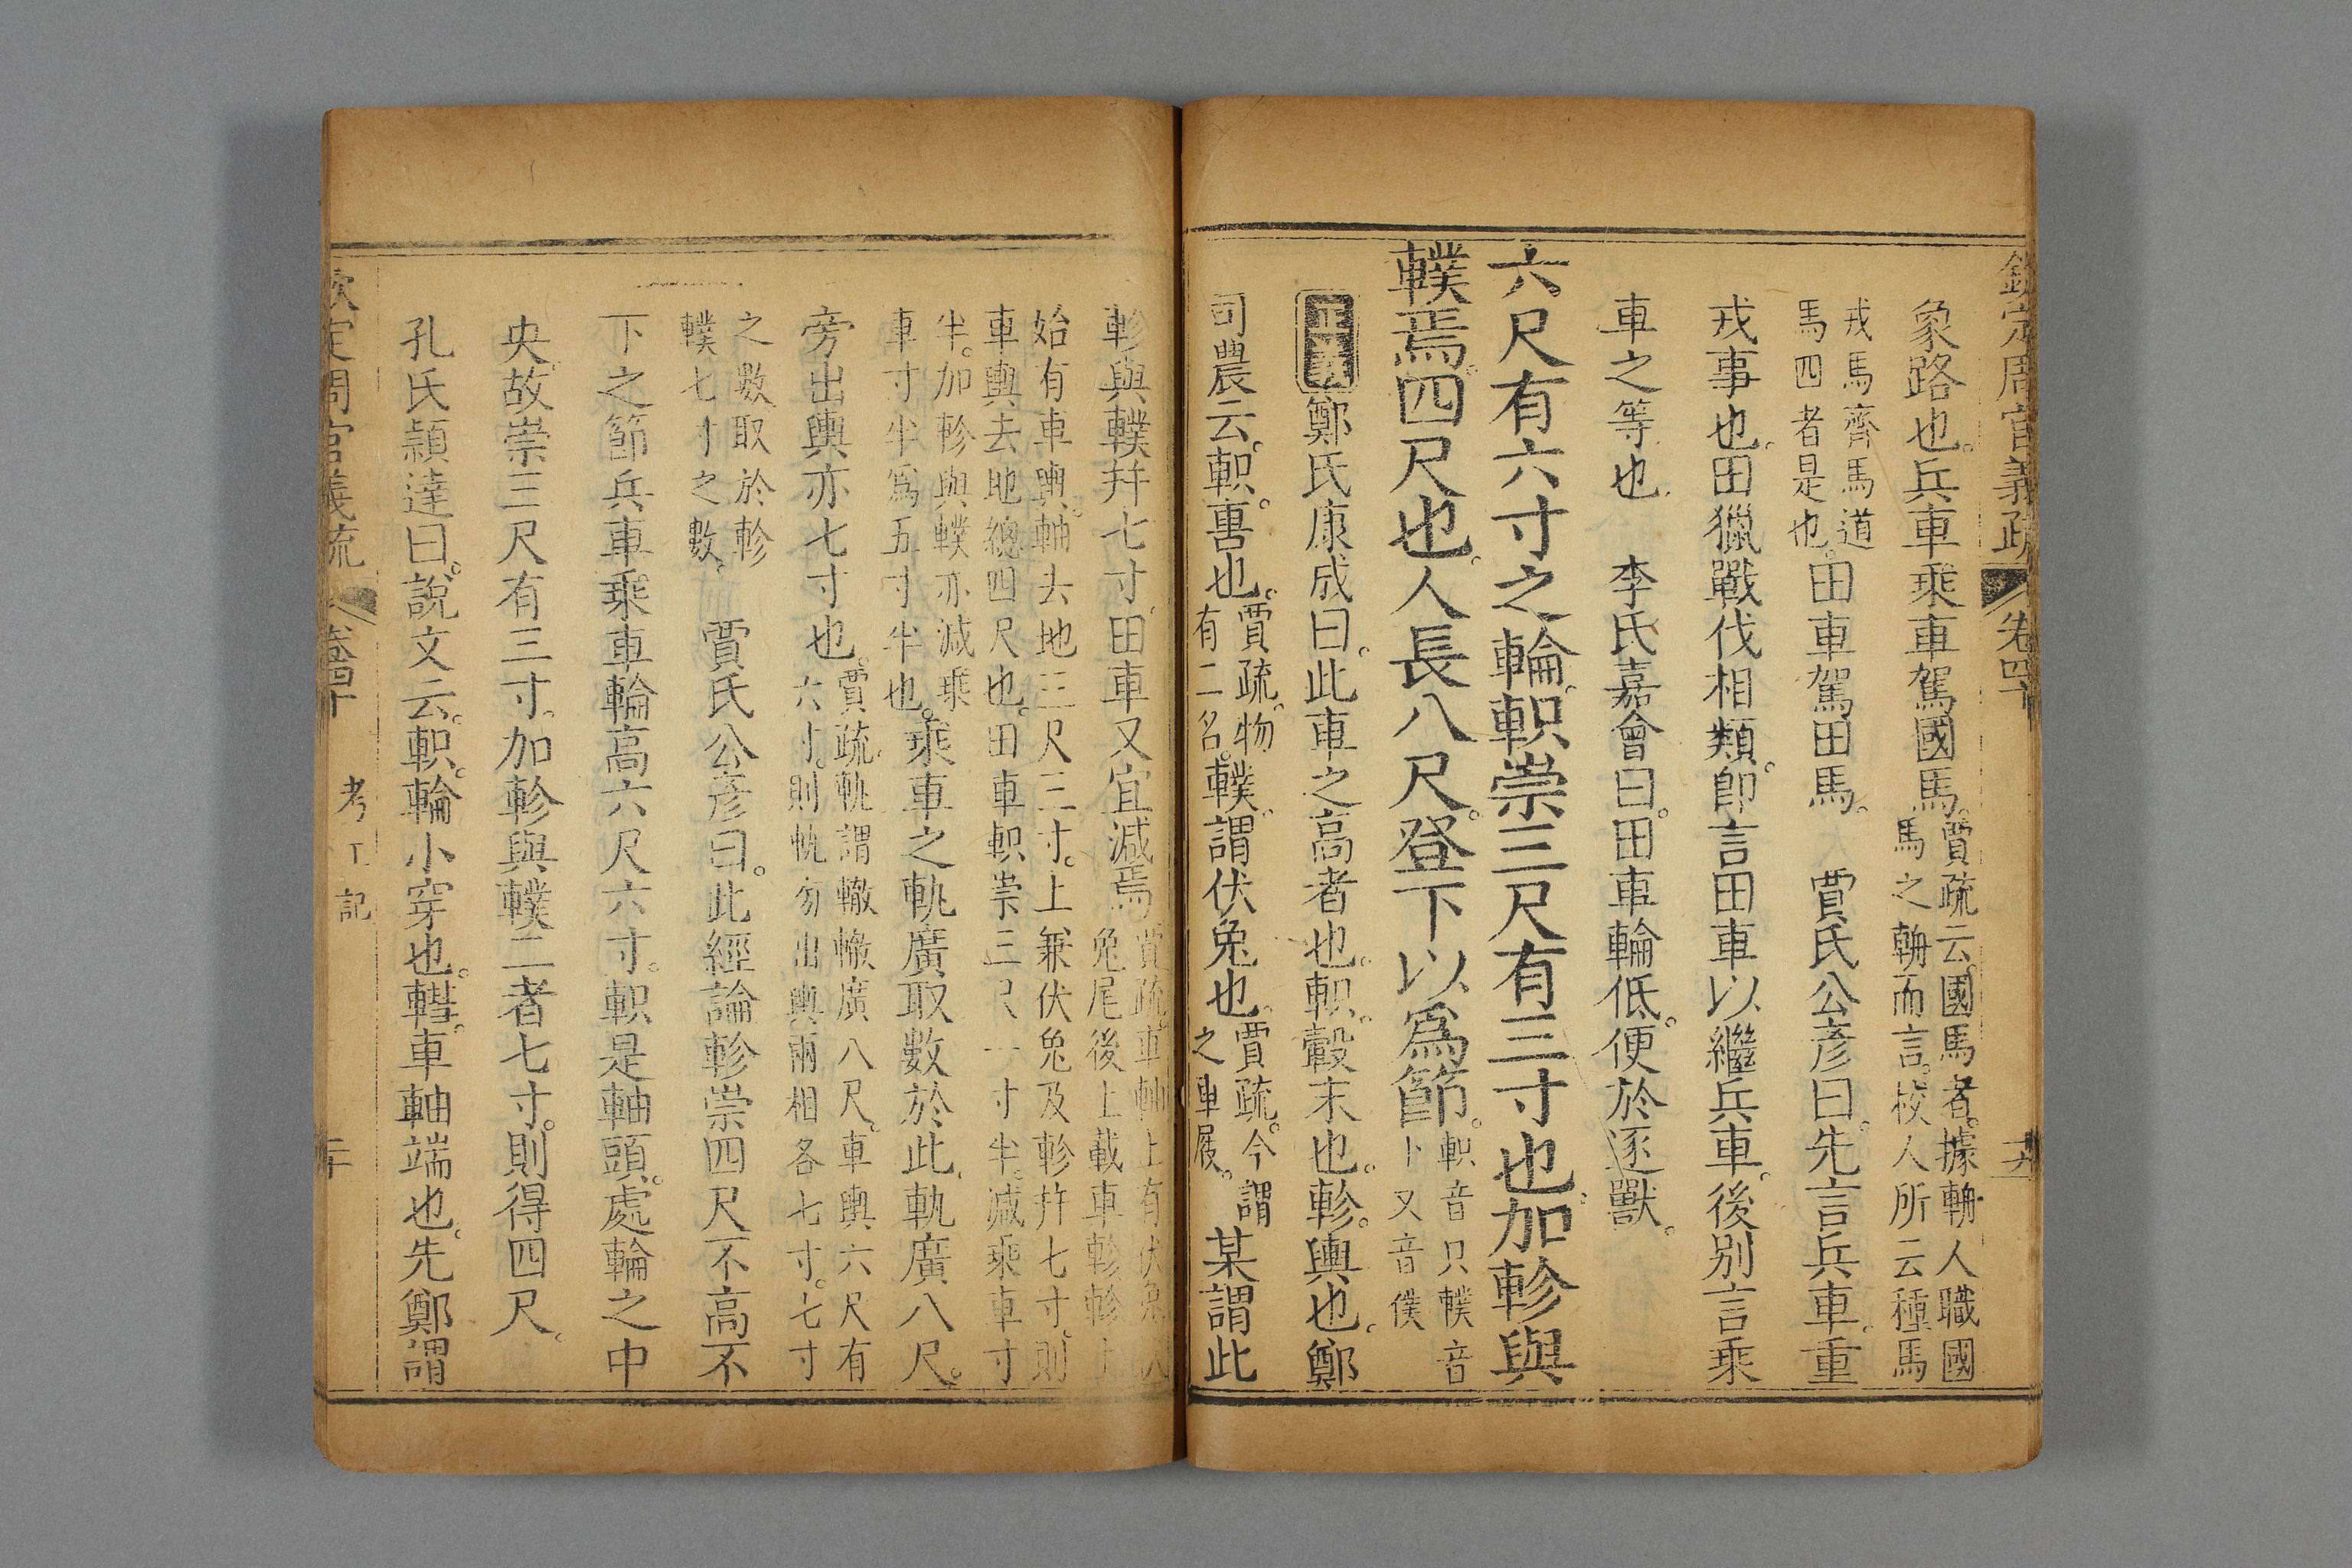 欽定周官義疏 卷四十
象路也。兵車乘車駕國馬。賈疏云。國馬者。據輈人職國
馬之輈而言。校人所云種馬
戎馬齊馬道
馬四者是也。田車駕田馬。 賈氏公彥曰。先言兵車。重
戎事也。田獵戰伐相類。即言田車以繼兵車。後別言乘
車之等也 李氏嘉會曰。田車輪低。便於逐獸。
六尺有六寸之輪。軹崇三尺有三寸也。加軫與
轐焉。四尺也。人長八尺。登下以為節。軹音只轐音
卜又音僕
正義 鄭氏康成曰。此車之高者也。軹。轂末也。軫。輿也。鄭
司農云。軹。軎也。賈疏。物
有二名。轐。謂伏兔也。賈疏。今謂
之車屐。某謂此
軫與轐并七寸。田車又宜減焉。賈疏。車軸上有伏兔伏
兔尾後上載車軫軫上
始有車輿。軸去地三尺三寸。上兼伏兔及軫并七寸。則
車輿去地總四尺也。田車軹崇三尺一寸半。減乘車寸
半。加軫與轐亦減乘
車寸半爲五寸半也。乘車之軌廣取數於此。軌廣八尺。
旁出輿亦七寸也。賈疏。軌謂轍轍廣八尺。車輿六尺有
六寸。則軌旁出輿兩相各七寸。七寸
之數取於軫
轐七寸之數。 賈氏公彥曰。此經論軫崇四尺不高不
下之節兵車乘車輪高六尺六寸。軹是軸頭。處輪之中
央。故崇三尺有三寸。加軫與轐二者七寸。則得四尺。
孔氏穎達曰。說文云。軹。輪小穿也。轊。車軸端也。先鄭謂
欽定周官義疏 卷四十 考工記 二十